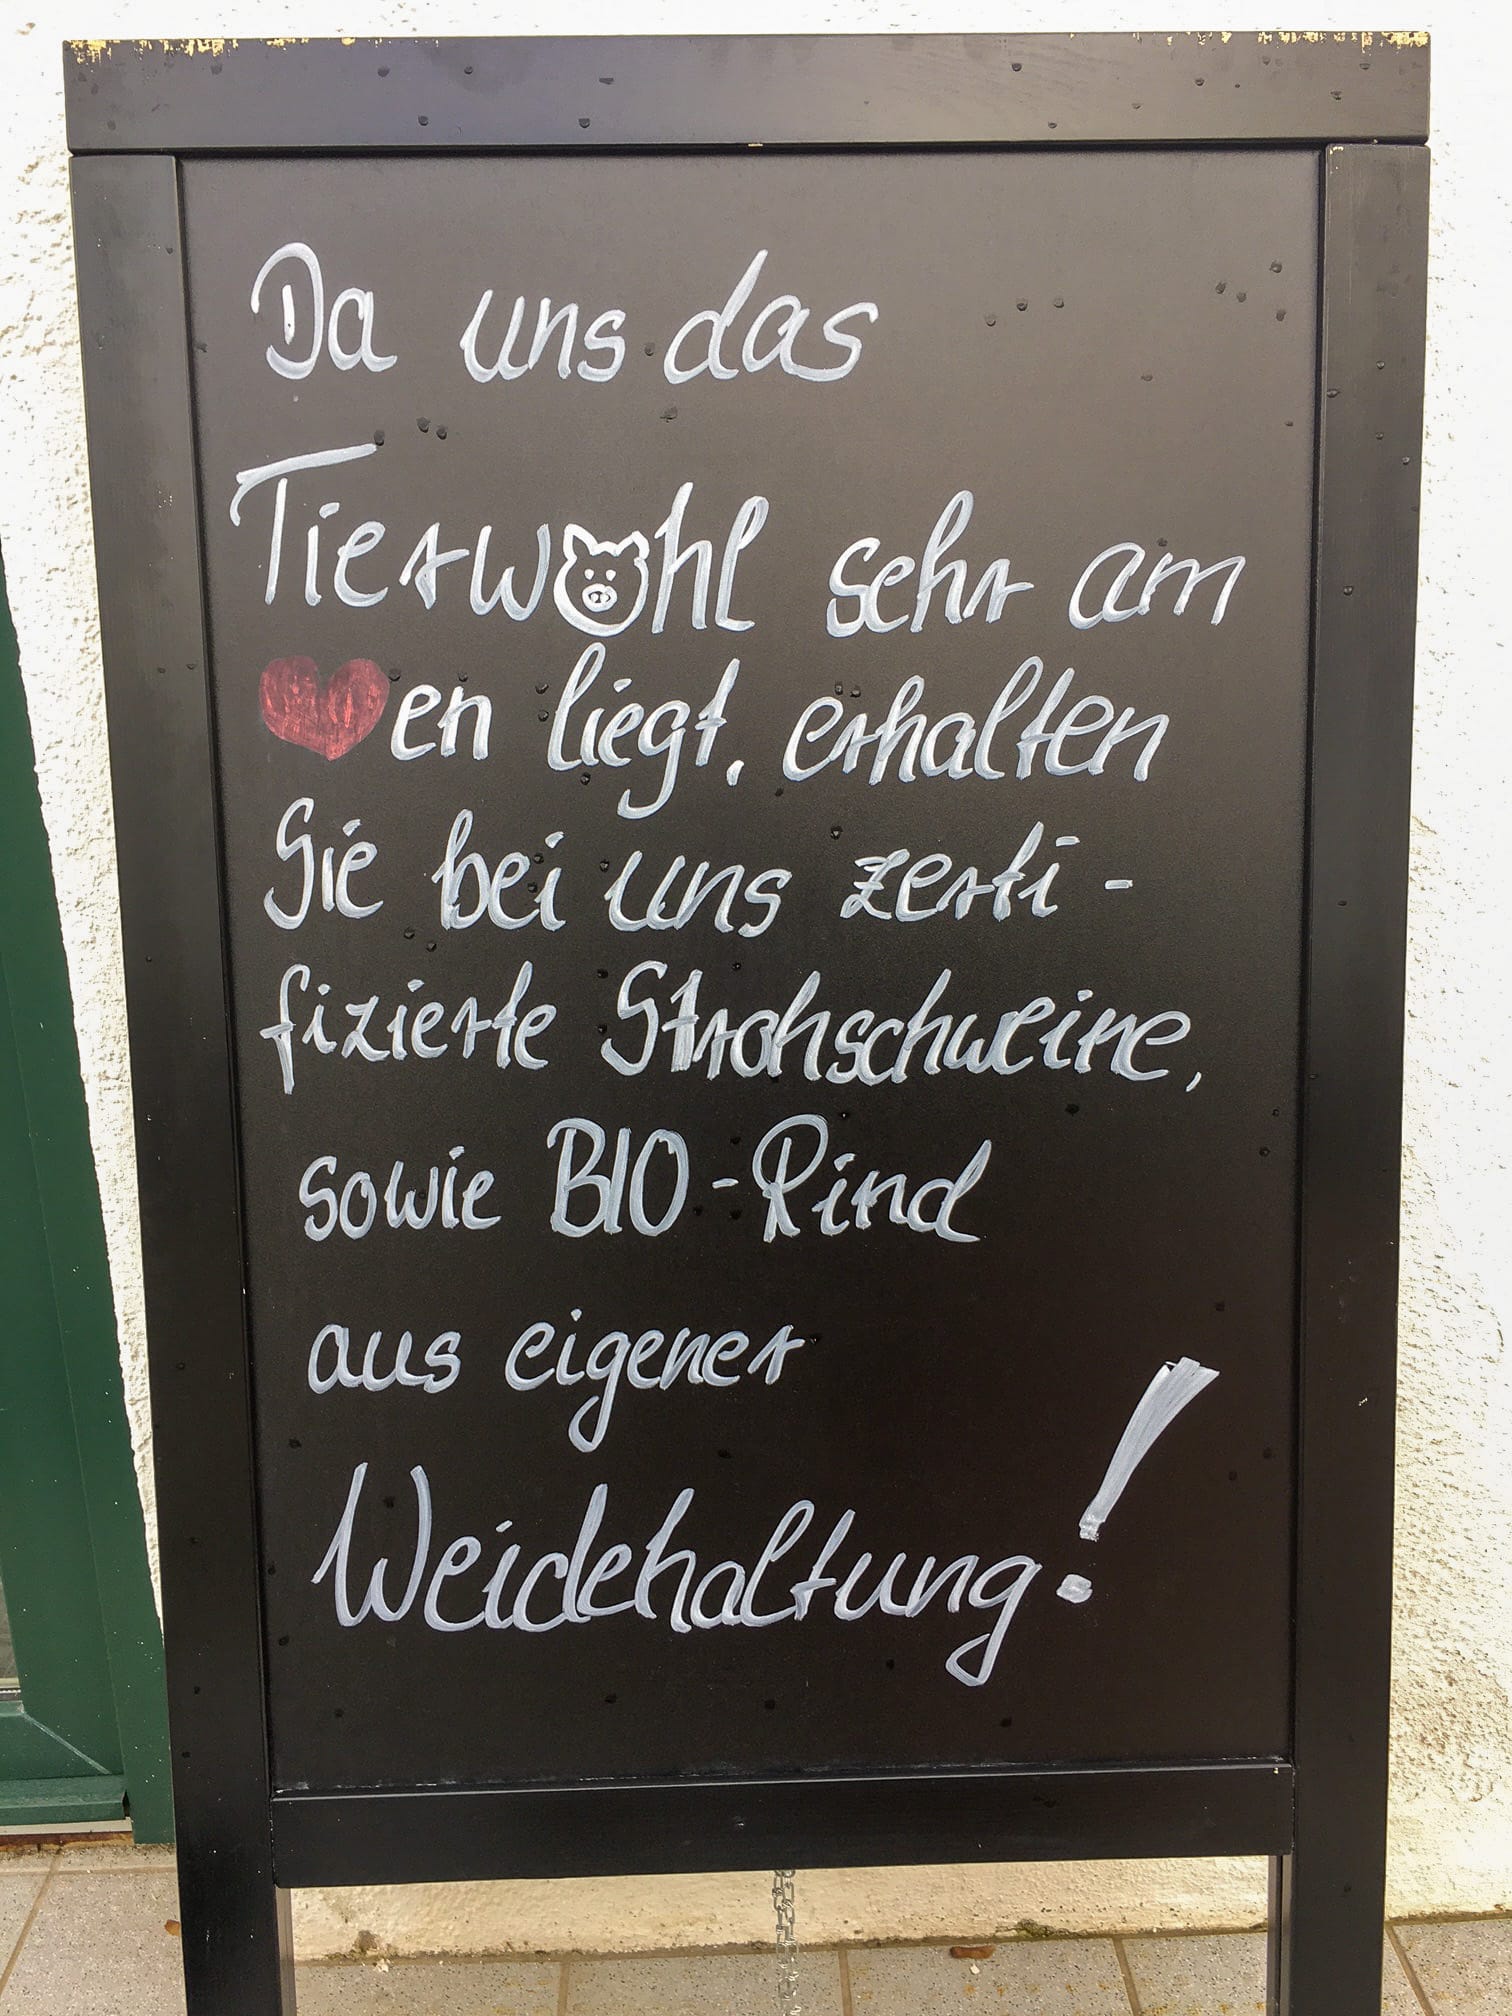 Da uns das
Tierwohl sehr am
❤en liegt, erhalten
Sie bei uns zerti-
fizierte Strohschweine,
sowie BIO-Rind
aus eigener
Weidehaltung!